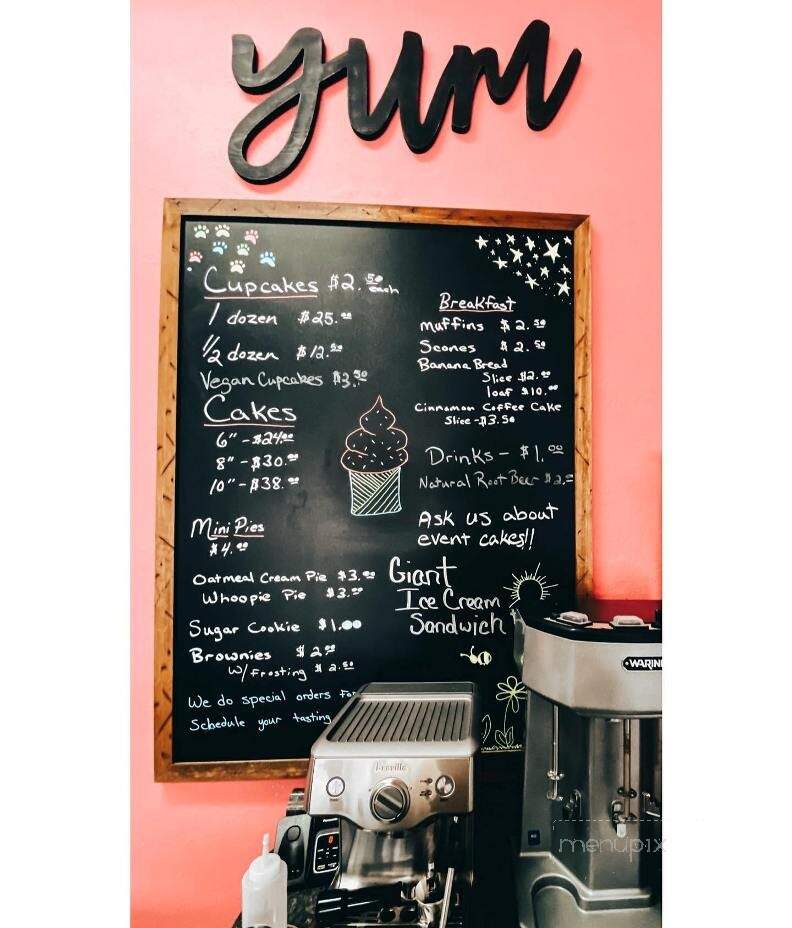 yum
Cupcakes $2.50 each
1 dozen $25.00
1/2 dozen $12.50
Vegan Cupcakes $3.50
Cakes
6" - $24.00
8" - $30.00
10" - $38.00
Mini Pies
$4.00
Oatmeal Cream Pie $3.00
Whoopie Pie $3.00
Sugar Cookie $1.00
Brownies $2.00
w/ Frosting $2.50
We do special orders For
Schedule your tasting
Breakfast
muffins $2.50
Scones $2.50
Banana Bread
Slice $2.00
loaf $10.00
Cinnamon Coffee Cake
Slice - $3.50
Drinks - $1.00
Natural Root Beer $2.
Ask us about
event cakes!!
Giant
Ice Cream
Sandwich
WARIN
Breville
menupix